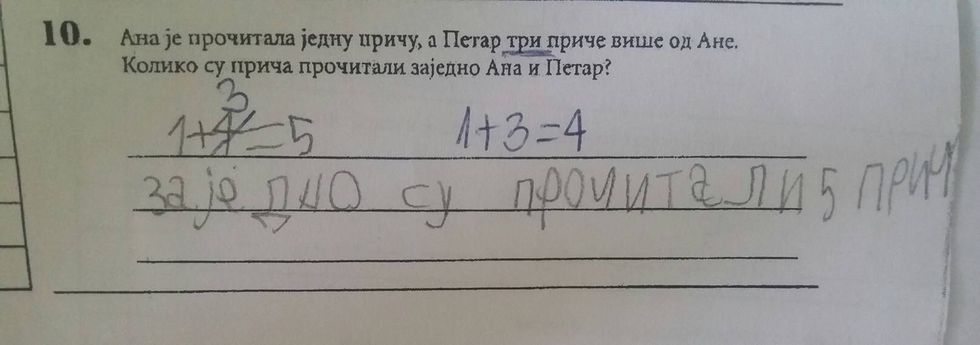 10. Ана је прочитала једну причу, а Петар три приче више од Ане.
Колико су прича прочитали заједно Ана и Петар?
3
1+4=5 1+3=4
заједно су прочитали 5 прич